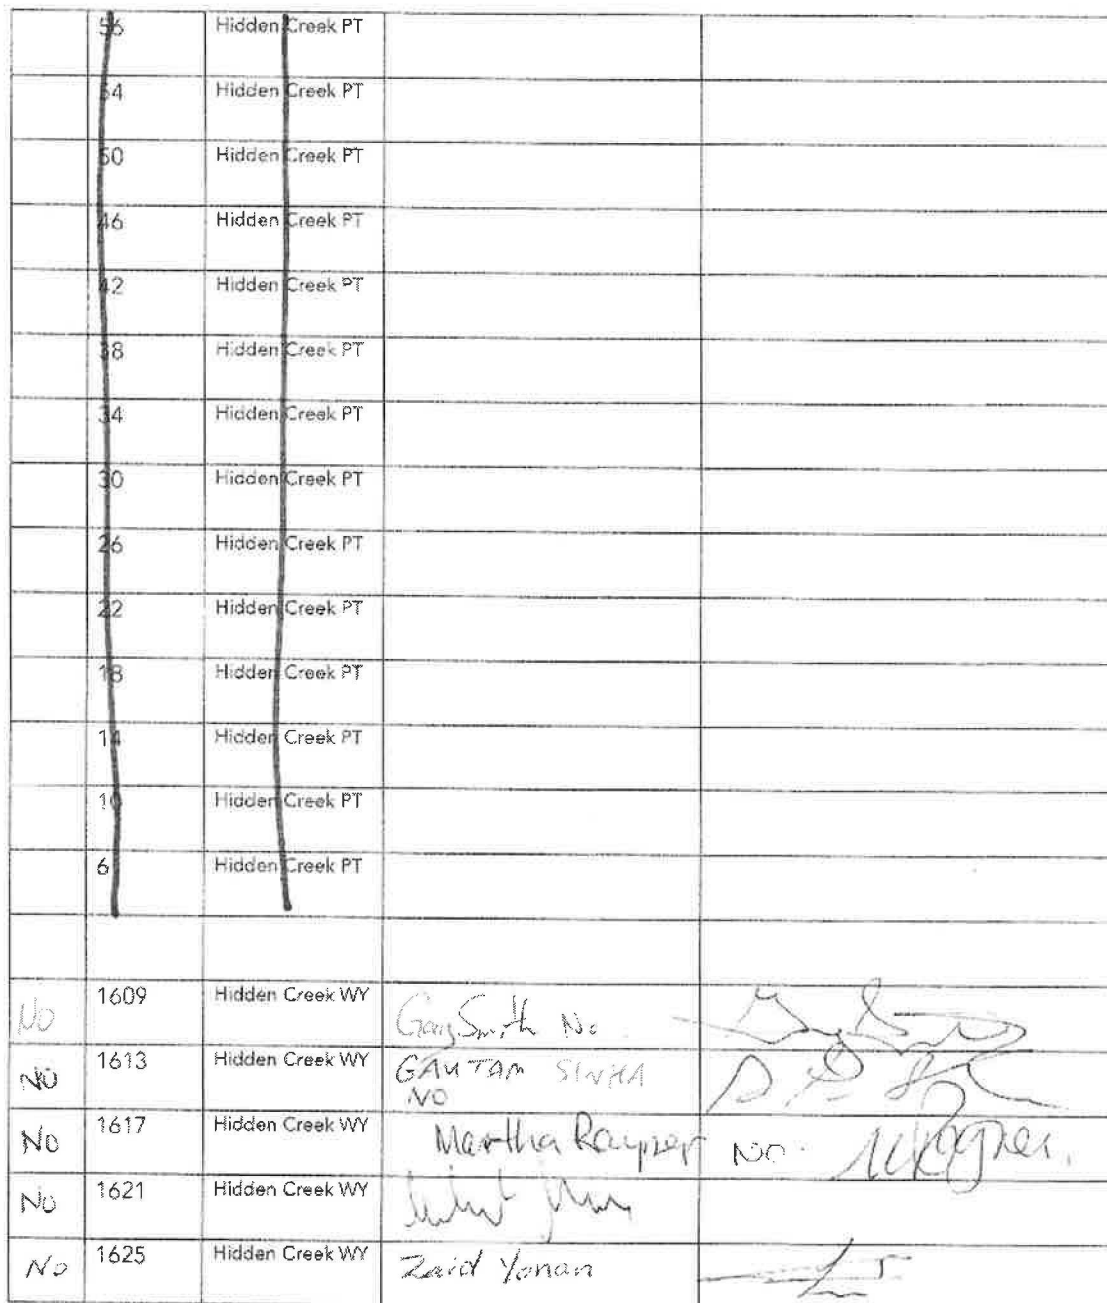 56 Hidden Creek PT
54 Hidden Creek PT
50 Hidden Creek PT
46 Hidden Creek PT
42 Hidden Creek PT
38 Hidden Creek PT
34 Hidden Creek PT
30 Hidden Creek PT
26 Hidden Creek PT
22 Hidden Creek PT
18 Hidden Creek PT
14 Hidden Creek PT
10 Hidden Creek PT
6 Hidden Creek PT
No 1609 Hidden Creek WY Gary Smith No
NO 1613 Hidden Creek WY GAUTAM SINHA
NO
No 1617 Hidden Creek WY Martha NO.
No 1621 Hidden Creek WY
No 1625 Hidden Creek WY Zaid Yonan